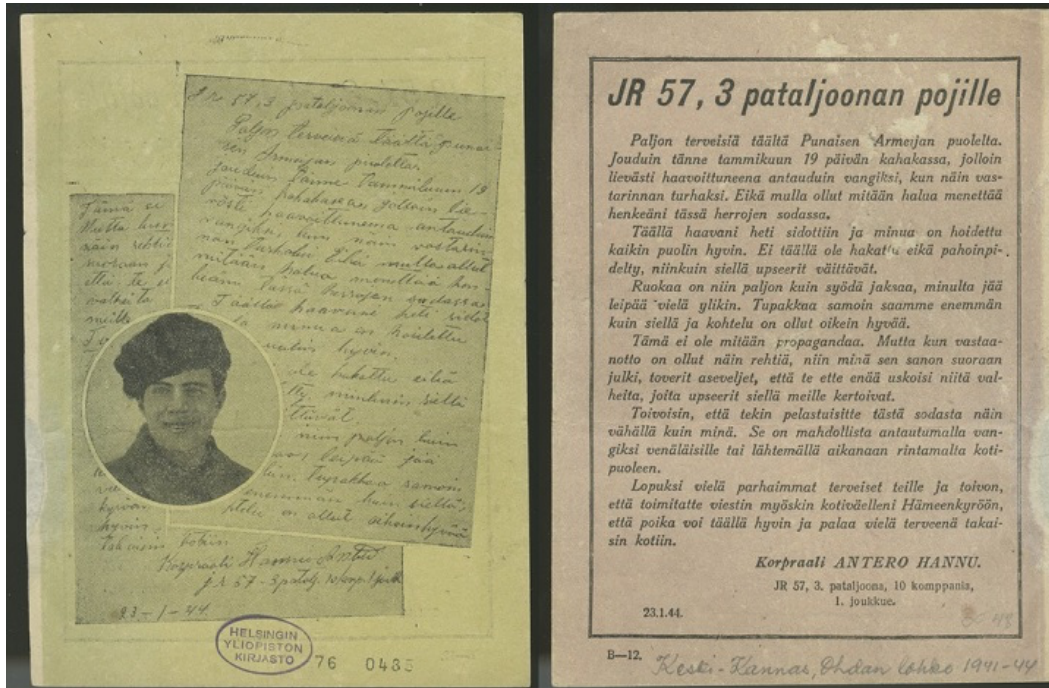 J.R. 57, 3 pataljoonan pojille
Paljon terveisiä täältä punai
sen Armeijan puolelta.
Jouduin tänne tammikuun 19
päivän kahakassa, jolloin lie-
västi haavoittuneena antauduin
vangiksi, kun näin vastarin-
nan turhaksi. Eikä mulla ollut
mitään halua menettää hen-
keäni tässä herrojen sodassa.
Täällä haavani heti sidot
minua on hoidettu
puolin hyvin.
ole hakattu eikä
niinkuin siellä
väittävät
niin paljon kuin
leipää jää
Tupakkaa samoin
enemmän kuin siellä,
on ollut oikein hyvää
Tämä ei
Mutta kun
näin rehti
suoraan j
että te e
valheita
meille
hyvin
takaisin kotiin
Korpraali Hannu Antero
J R 57 - 3 patalj. 10 komp. 1 jouk
23-1-44
HELSINGIN
YLIOPISTON
KIRJASTO
76 0435
JR 57, 3 pataljoonan pojille
Paljon terveisiä täältä Punaisen Armeijan puolelta.
Jouduin tänne tammikuun 19 päivän kahakassa, jolloin
lievästi haavoittuneena antauduin vangiksi, kun näin vas-
tarinnan turhaksi. Eikä mulla ollut mitään halua menettää
henkeäni tässä herrojen sodassa.
Täällä haavani heti sidottiin ja minua on hoidettu
kaikin puolin hyvin. Ei täällä ole hakattu eikä pahoinpi-
delty, niinkuin siellä upseerit väittävät.
Ruokaa on niin paljon kuin syödä jaksaa, minulta jää
leipää vielä ylikin. Tupakkaa samoin saamme enemmän
kuin siellä ja kohtelu on ollut oikein hyvää.
Tämä ei ole mitään propagandaa. Mutta kun vastaa-
notto on ollut näin rehtiä, niin minä sen sanon suoraan
julki, toverit aseveljet, että te ette enää uskoisi niitä val-
heita, joita upseerit siellä meille kertoivat.
Toivoisin, että tekin pelastuisitte tästä sodasta näin
vähällä kuin minä. Se on mahdollista antautumalla van-
giksi venäläisille tai lähtemällä aikanaan rintamalta koti-
puoleen.
Lopuksi vielä parhaimmat terveiset teille ja toivon,
että toimitatte viestin myöskin kotiväelleni Hämeenkyröön,
että poika voi täällä hyvin ja palaa vielä terveenä takai-
sin kotiin.
Korpraali ANTERO HANNU.
JR 57, 3. pataljoona, 10 komppania,
1. joukkue.
23.1.44.
B—12.
Keski-Kannas, Ohdan lohko 1941-44